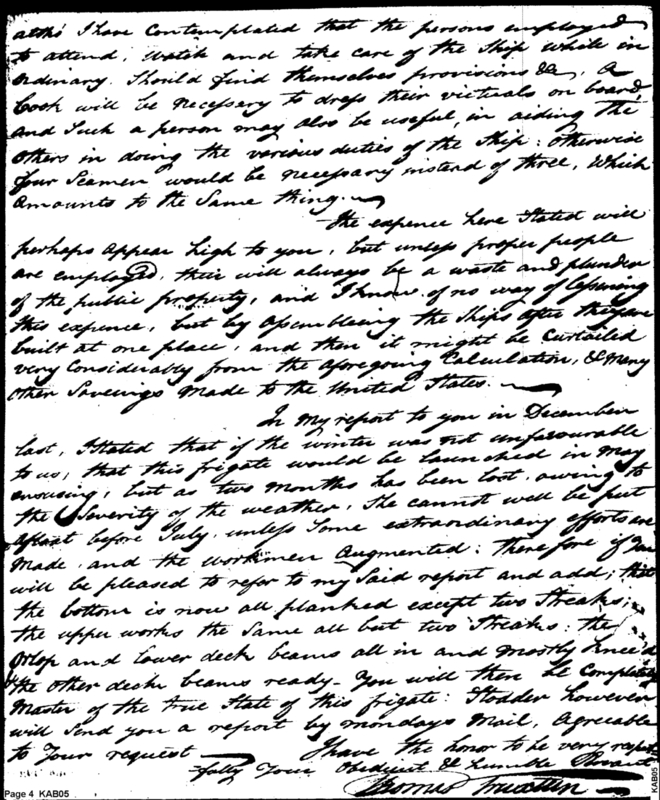 altho' I have Contemplated that the persons employed
to attend, watch and take care of the Ship while in
ordinary. Should find themselves provisions &c, a
Cook will be necessary to dress their victuals on board,
and Such a person may also be useful, in aiding the
others in doing the various duties of the Ship: otherwise
four Seamen would be necessary instead of three, Which
amounts to the Same thing.
The expence here Stated will
perhaps appear high to you, but unless proper people
are employed, their will always be a waste and plunder
of the public property, and I know of no way of lessening
this expence, but by assembleing the Ships after they are
built at one place, and then it might be Curtailed
very Considerably from the aforegoing Calculation, & Many
other Saveings Made to the United States.
In My report to you in December
last, I Stated that if the winter was not unfavourable
to us, that this frigate would be launched in May
ensueing, but as two Months has been lost, owing to
the Severity of the weather, She cannot well be put
afloat before July, unless Some extraordinary efforts are
Made, and the workmen Augmented: therefore if you
will be pleased to refer to my Said report and add, that
the bottom is now all planked except two Streaks,
the upper works the Same all but two Streaks: the
Orlop and lower deck beams all in and mostly knee'd
the other deck beams ready. You will then be Completely
Master of the true State of this frigate: Stodder however
will Send you a report by mondays Mail, Agreeable
to Your request
I have the honor to be very respect
fully Your Obedient & humble Servant
Thomas Truxtun
Page 4 KAB05
KAB05